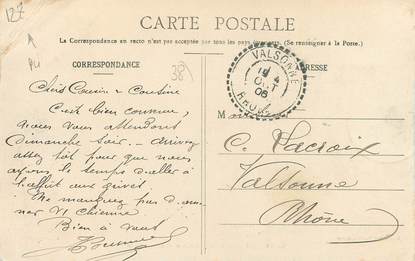 127
CARTE POSTALE
La Correspondance au recto n'est pas acceptée par tous les pays étrangers. (Se renseigner à la Poste.)
CORRESPONDANCE
ADRESSE
38
VALSONNE
OCT
08
RHÔNE
Chers Cousin & Cousine
C'est bien convenu,
nous vous attendons
Dimanche soir. Arrivez
assez tôt pour que nous
ayons le temps d'aller à
l'affût aux grives.
Ne manquez pas d'ame-
ner Vt Chienne
Bien à vous
M
C. Lacroix
Valsonne
Rhône